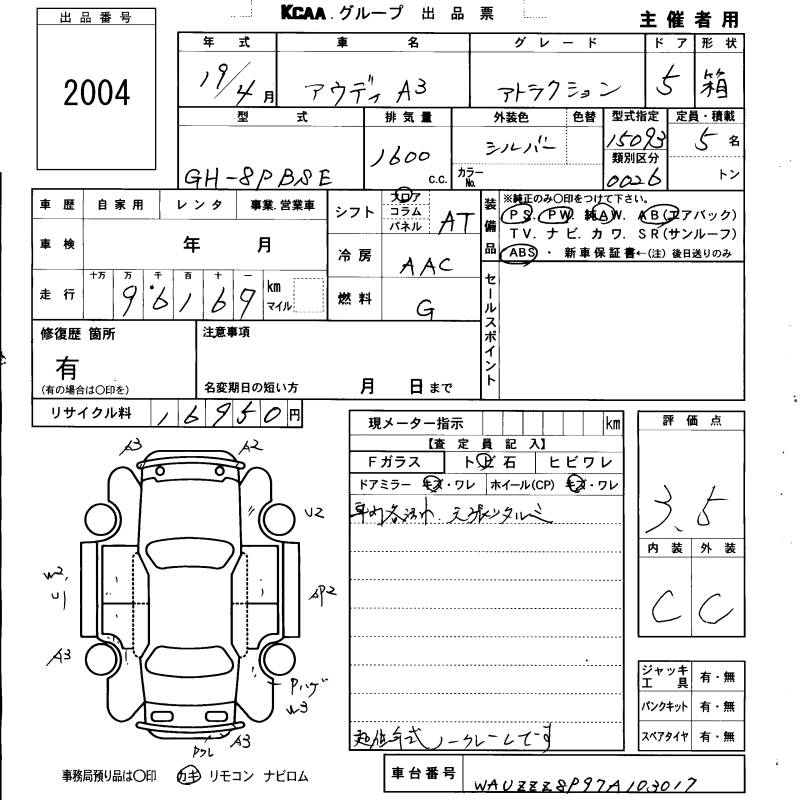 KCAA.グループ 出品票
主催者用
出品番号
2004
年式 車名 グレード ドア 形状
19/4月 アウディ A3 アトラクション 5 箱
型式 排気量 外装色 色替 型式指定 定員・積載
GH-8PBSE 1600 c.c. シルバー カラーNo. 15093 5名
類別区分
0026 トン
車歴 自家用 レンタ 事業.営業車
車検 年 月
走行 十万 万 千 百 十 一
96169 km マイル
シフト フロア コラム パネル AT
冷房 AAC
燃料 G
装備品 ※純正のみ〇印をつけて下さい。
PS. PW. 純AW. AB(エアバック)
TV. ナビ. カワ. SR(サンルーフ)
ABS ・ 新車保証書←(注) 後日送りのみ
セールスポイント
修復歴 箇所
有
(有の場合は〇印を)
注意事項
名変期日の短い方 月 日まで
リサイクル料 16950円
現メーター指示 km
【査定員記入】
Fガラス トビ石 ヒビワレ
ドアミラー キズ・ワレ ホイール(CP) キズ・ワレ
評価点
3.5
内装 外装
C C
A3 A2
U2
W2
U1
AP2
A3
Pハゲ
W3
A3
ジャッキ工具 有・無
パンクキット 有・無
スペアタイヤ 有・無
ノークレームです
事務局預り品は〇印 カギ リモコン ナビロム
車台番号 WAUZZZ8P97A103017